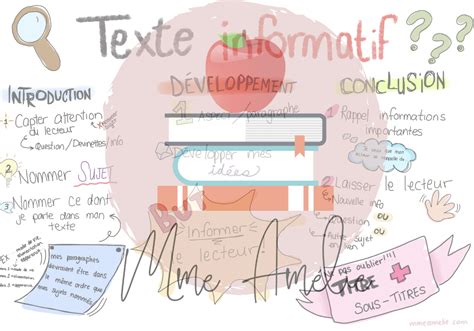 Texte informatif
???
INTRODUCTION
1 Capter attention
du lecteur
↳ Question/Devinettes/Info
2 Nommer SUJET
3 Nommer Ce dont
je parle dans mon
texte
Ex
mes paragraphes
devraient être dans
le même ordre que
mes sujets nommés.
DÉVELOPPEMENT
1 Aspect /paragraphe
Développer mes
idées
BUT
Informer
le lecteur
CONCLUSION
1 Rappel informations
importantes
Je veux que mon
lecteur se rappelle de
2 Laisser le lecteur
Nouvelle info
Question
autre
Sujet
Mme Amel
pas oublier!
TITRE
+
SOUS-TITRES